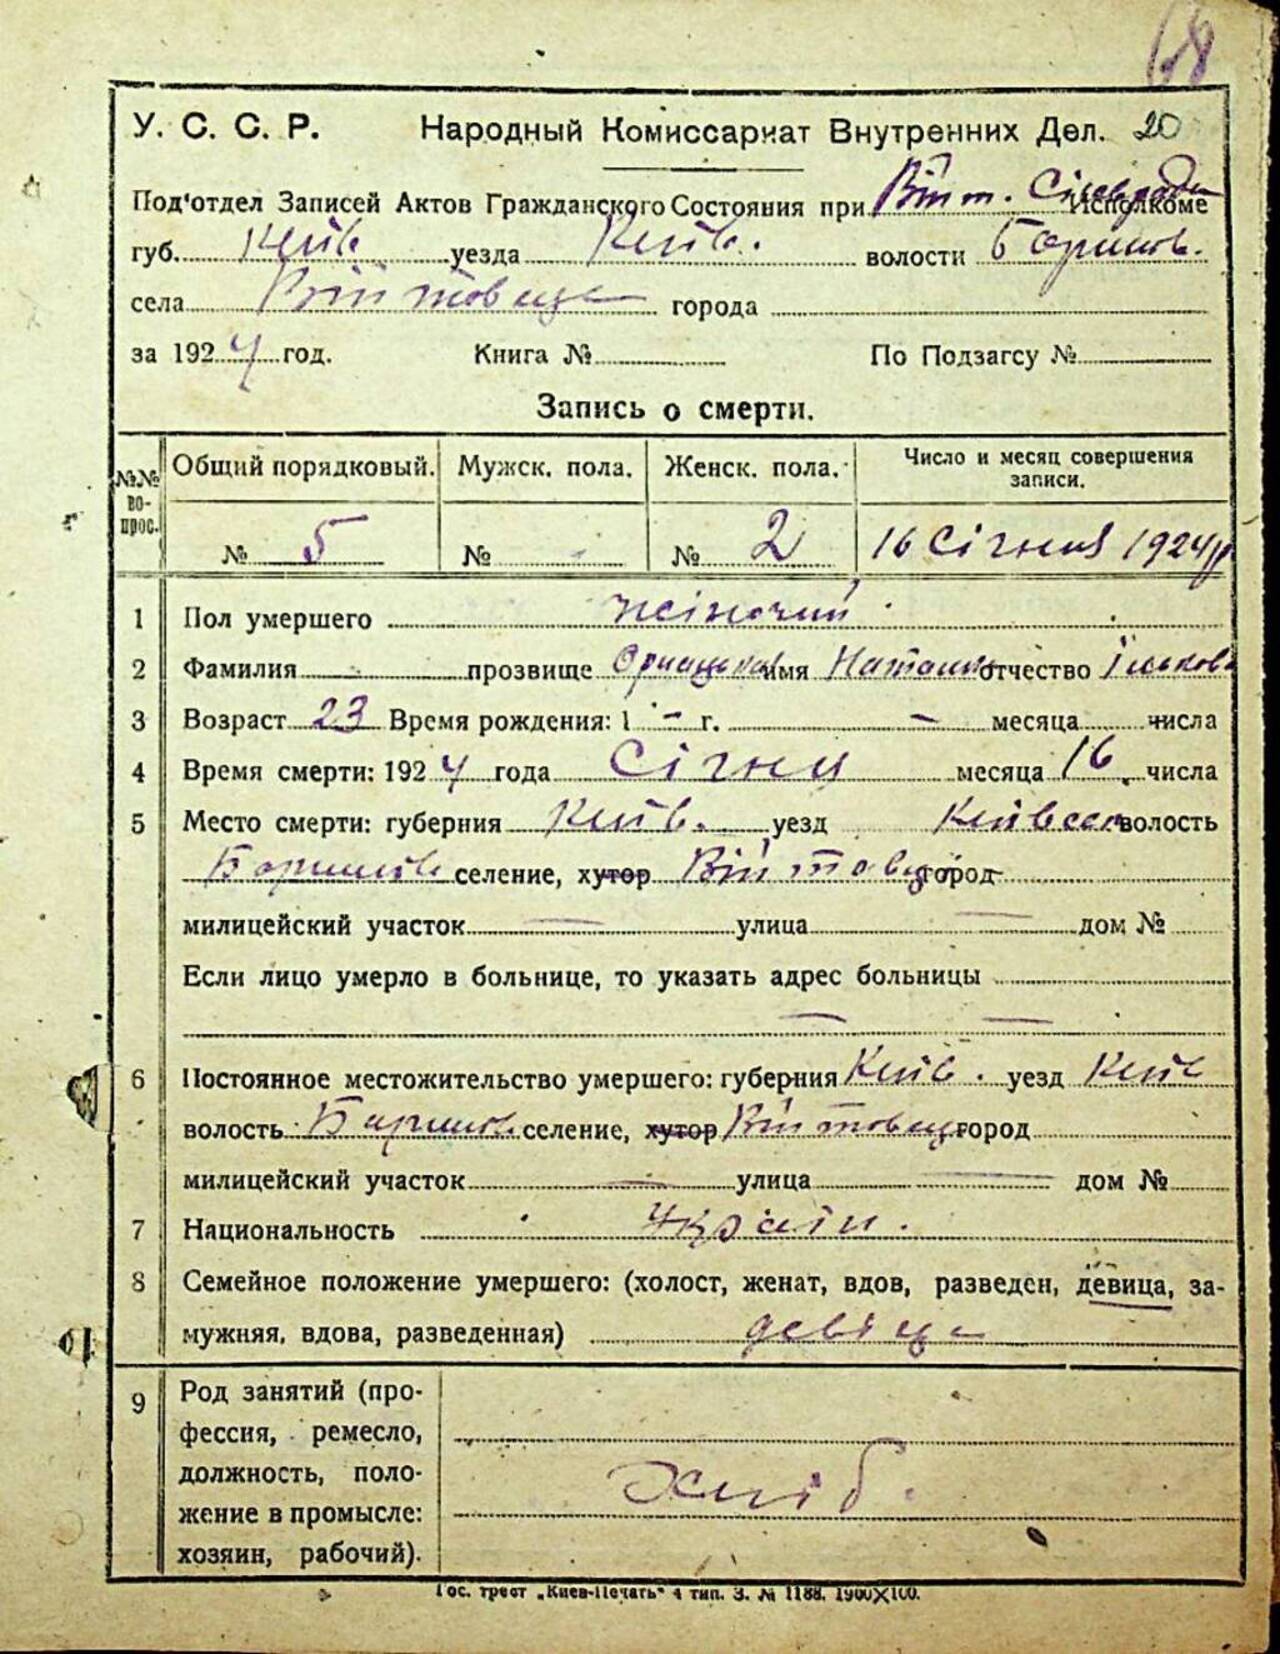 68
У. С. С. Р. Народный Комиссариат Внутренних Дел. 20
Под'отдел Записей Актов Гражданского Состояния при Війт. Сільради Исполкоме
губ. Київ. уезда Київ. волости Баришов.
села Війтовці города
за 1924 год. Книга № По Подзагсу №
Запись о смерти.
№№ во-прос. Общий порядковый. Мужск. пола. Женск. пола. Число и месяц совершения записи.
№ 5 № - № 2 16 Січня 1924 р
1 Пол умершего жіночий
2 Фамилия прозвище имя отчество
3 Возраст 23 Время рождения: 1 - г. - месяца числа
4 Время смерти: 1924 года Січня месяца 16 числа
5 Место смерти: губерния Київ. уезд волость
Баришів селение, хутор город
милицейский участок — улица — дом №
Если лицо умерло в больнице, то указать адрес больницы
— —
6 Постоянное местожительство умершего: губерния Київ. уезд Київ
волость Баришов. селение, хутор город
милицейский участок — улица — дом №
7 Национальность Україн.
8 Семейное положение умершего: (холост, женат, вдов, разведен, девица, за-
мужняя, вдова, разведенная) девіца
9 Род занятий (про-
фессия, ремесло,
должность, поло-
жение в промысле:
хозяин, рабочий).
Хліб.
Гос. трест „Киев-Печать" 4 тип. З. № 1188. 1900X100.